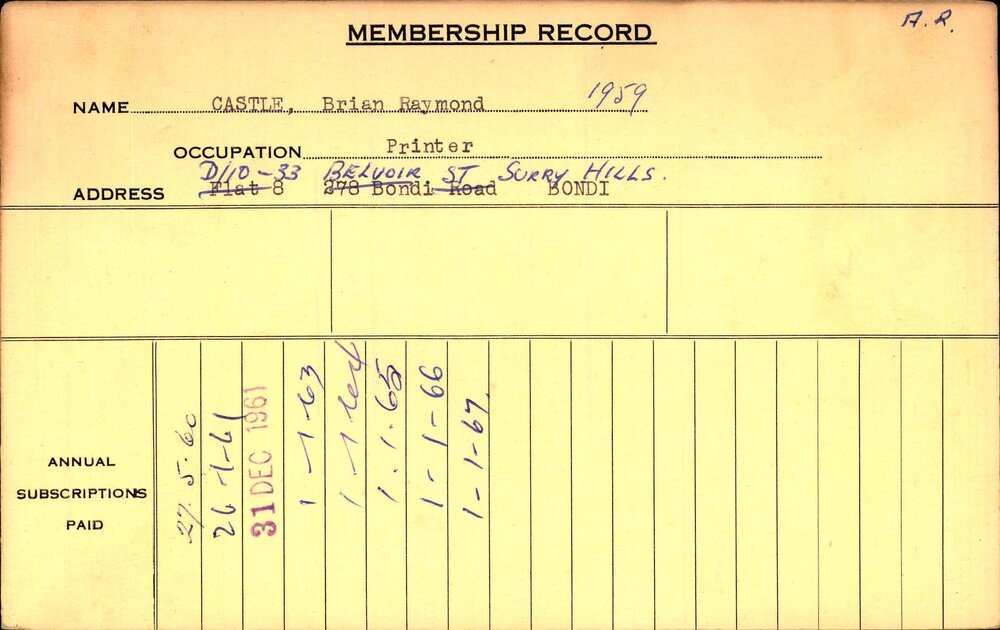 A.R.
MEMBERSHIP RECORD
NAME CASTLE, Brian Raymond 1959
OCCUPATION Printer
D/10-33 BELVOIR ST SURRY HILLS.
ADDRESS Flat 8 278 Bondi Road BONDI
ANNUAL
SUBSCRIPTIONS
PAID
27.5.60
26-1-61
31 DEC 1961
1-1-63
1-1-64
1.1.65
1-1-66
1-1-67.